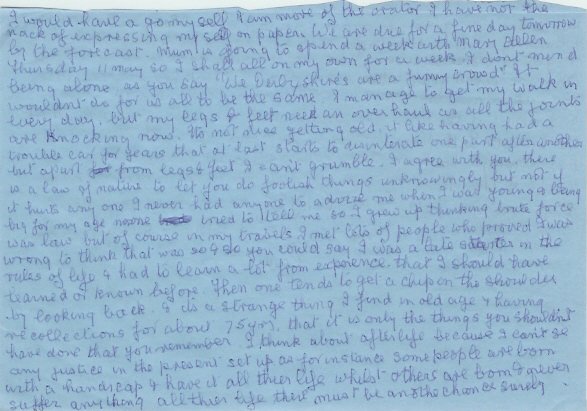 I would have a go myself I am more of the orator I have not the
nack of expressing my self on paper. We are due for a fine day tomorrow
by the forecast. Mum is going to spend a week with Mary Ellen
Thursday 11 may so I shall all on my own for a week I don't mind
being alone as you say "We Derbyshires are a funny crowd" It
wouldn't do for us all to be the same. I manage to get my walk in
every day, but my legs & feet need an overhaul as all the joints
are knocking now. Its not nice getting old, it like having had a
trouble car for years that at last starts to disintegrate one part after another
but apart from legs & feet I can't grumble. I agree with you, there
is a law of nature to let you do foolish things unknowingly but not if
it hurts any one I never had anyone to advise me when I was young & being
big for my age noone tried to tell me so I grew up thinking brute force
was law but of course in my travels I met lots of people who proved I was
wrong to think that was so & so you could say I was a late starter in the
rules of life & had to learn a lot from experence that I should have
learned or known before. Then one tends to get a chip on the shoulder
by looking back. & its a strange thing I find in old age & having
recollections for about 75 yrs, that it is only the things you shouldn't
have done that you remember. I think about afterlife because I can't se
any justice in the present set up as for instance some people are born
with a handicap & have it all thier life whilst others are born & never
suffer anything all thier life there must be another chance surely.